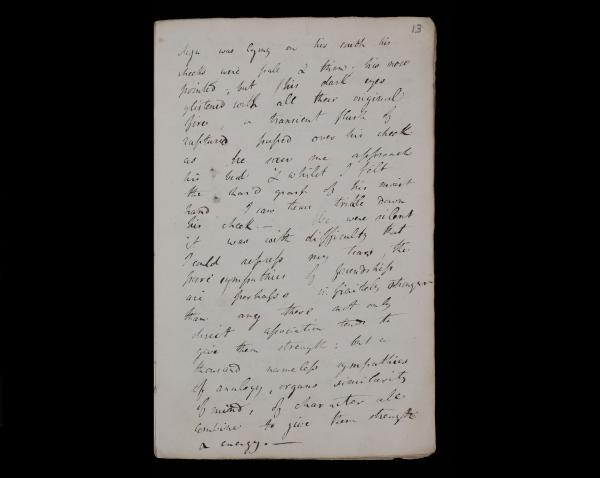 13
was lying on his couch his
cheeks were pale & thin; his nose
pointed, but his dark eyes
glistened with all their original
fire, a transient flush of
rapture passed over his cheek
as he saw me approach
his bed & whilst I felt
the hard grasp of his moist
hand I saw tears trickle down
his cheek — We were silent
it was with difficulty that
I could repress my tears, the
pure sympathies of friendship
are perhaps infinitely stronger
than any there not only
direct association tends to
give them strength: but a
thousand nameless sympathies
of analogy, organs similarity
of mind, of character all
combine to give them strength
& energy. —